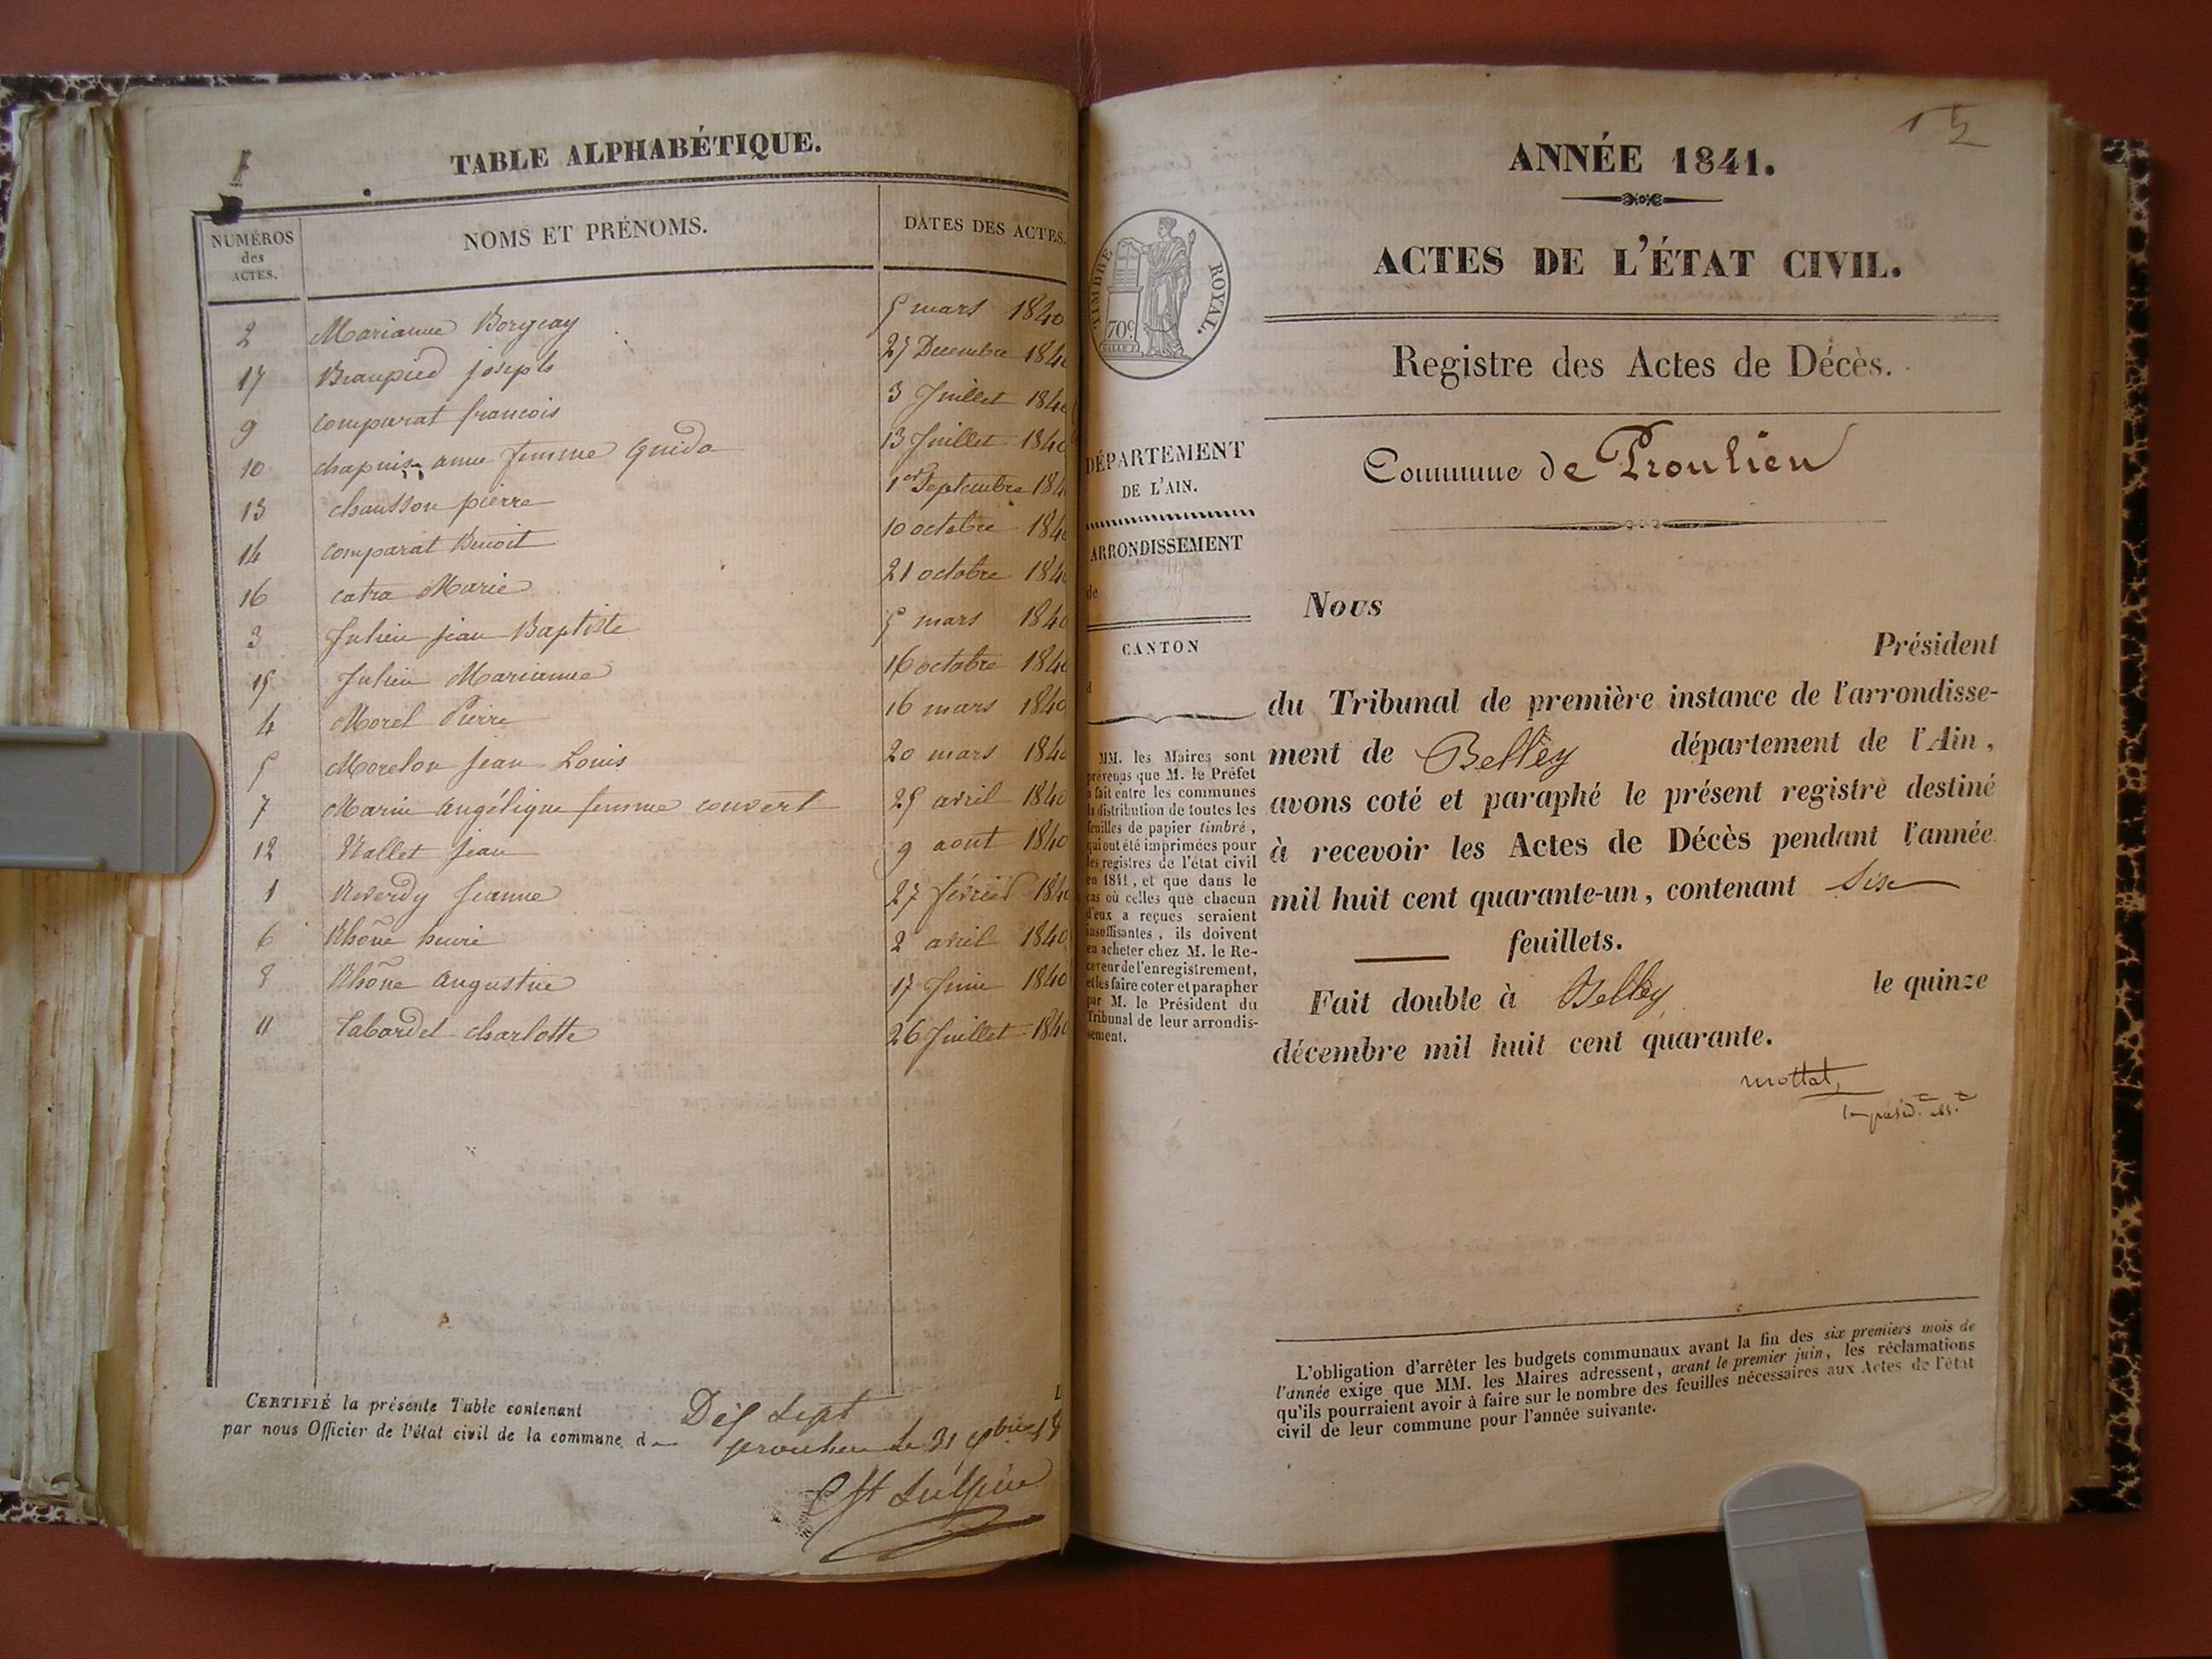 TABLE ALPHABÉTIQUE.
NUMÉROS des ACTES.
NOMS ET PRÉNOMS.
DATES DES ACTES.
2 Marianne Borgeay 5 mars 1840
17 Beaupied joseph 27 Decembre 184
9 comparat francois 3 Juillet 184
10 chapuis anne femme Guido 13 Juillet 1840
13 chausson pierre 1er Septembre 184
14 comparat Benoit 10 octobre 184
16 catra Marie 21 octobre 184
3 Julien jean Baptiste 5 mars 1840
15 Julien Marianne 16 octobre 184
4 Morel Pierre 16 mars 1840
5 Morelon jean Louis 20 mars 184
7 Marie angélique femme couvert 25 avril 1840
12 Nallet jean 9 aout 1840
1 Reverdy jeanne 27 février 184
6 Rhône henri 2 avril 1840
8 Rhône augustine 17 Juin 1840
11 Tabardel charlotte 26 Juillet 184
CERTIFIÉ la présente Table contenant Dix Sept
par nous Officier de l'état civil de la commune d proulieu le 31
ANNÉE 1841.
ACTES DE L'ÉTAT CIVIL.
TIMBRE ROYAL.
70c
Registre des Actes de Décès.
Commune de Proulieu
DÉPARTEMENT
DE L'AIN.
ARRONDISSEMENT
de
CANTON
d
MM. les Maires sont
prévenus que M. le Préfet
a fait entre les communes
la distribution de toutes les
feuilles de papier timbré,
qui ont été imprimées pour
les registres de l'état civil
en 1841, et que dans le
cas où celles que chacun
d'eux a reçues seraient
insuffisantes, ils doivent
en acheter chez M. le Re-
ceveur de l'enregistrement,
et les faire coter et parapher
par M. le Président du
Tribunal de leur arrondis-
sement.
Nous
Président
du Tribunal de première instance de l'arrondisse-
ment de Belley département de l'Ain,
avons coté et paraphé le présent registre destiné
à recevoir les Actes de Décès pendant l'année
mil huit cent quarante-un, contenant Six
feuillets.
Fait double à Belley le quinze
décembre mil huit cent quarante.
mottat,
L'obligation d'arrêter les budgets communaux avant la fin des six premiers mois de
l'année exige que MM. les Maires adressent, avant le premier juin, les réclamations
qu'ils pourraient avoir à faire sur le nombre des feuilles nécessaires aux Actes de l'état
civil de leur commune pour l'année suivante.